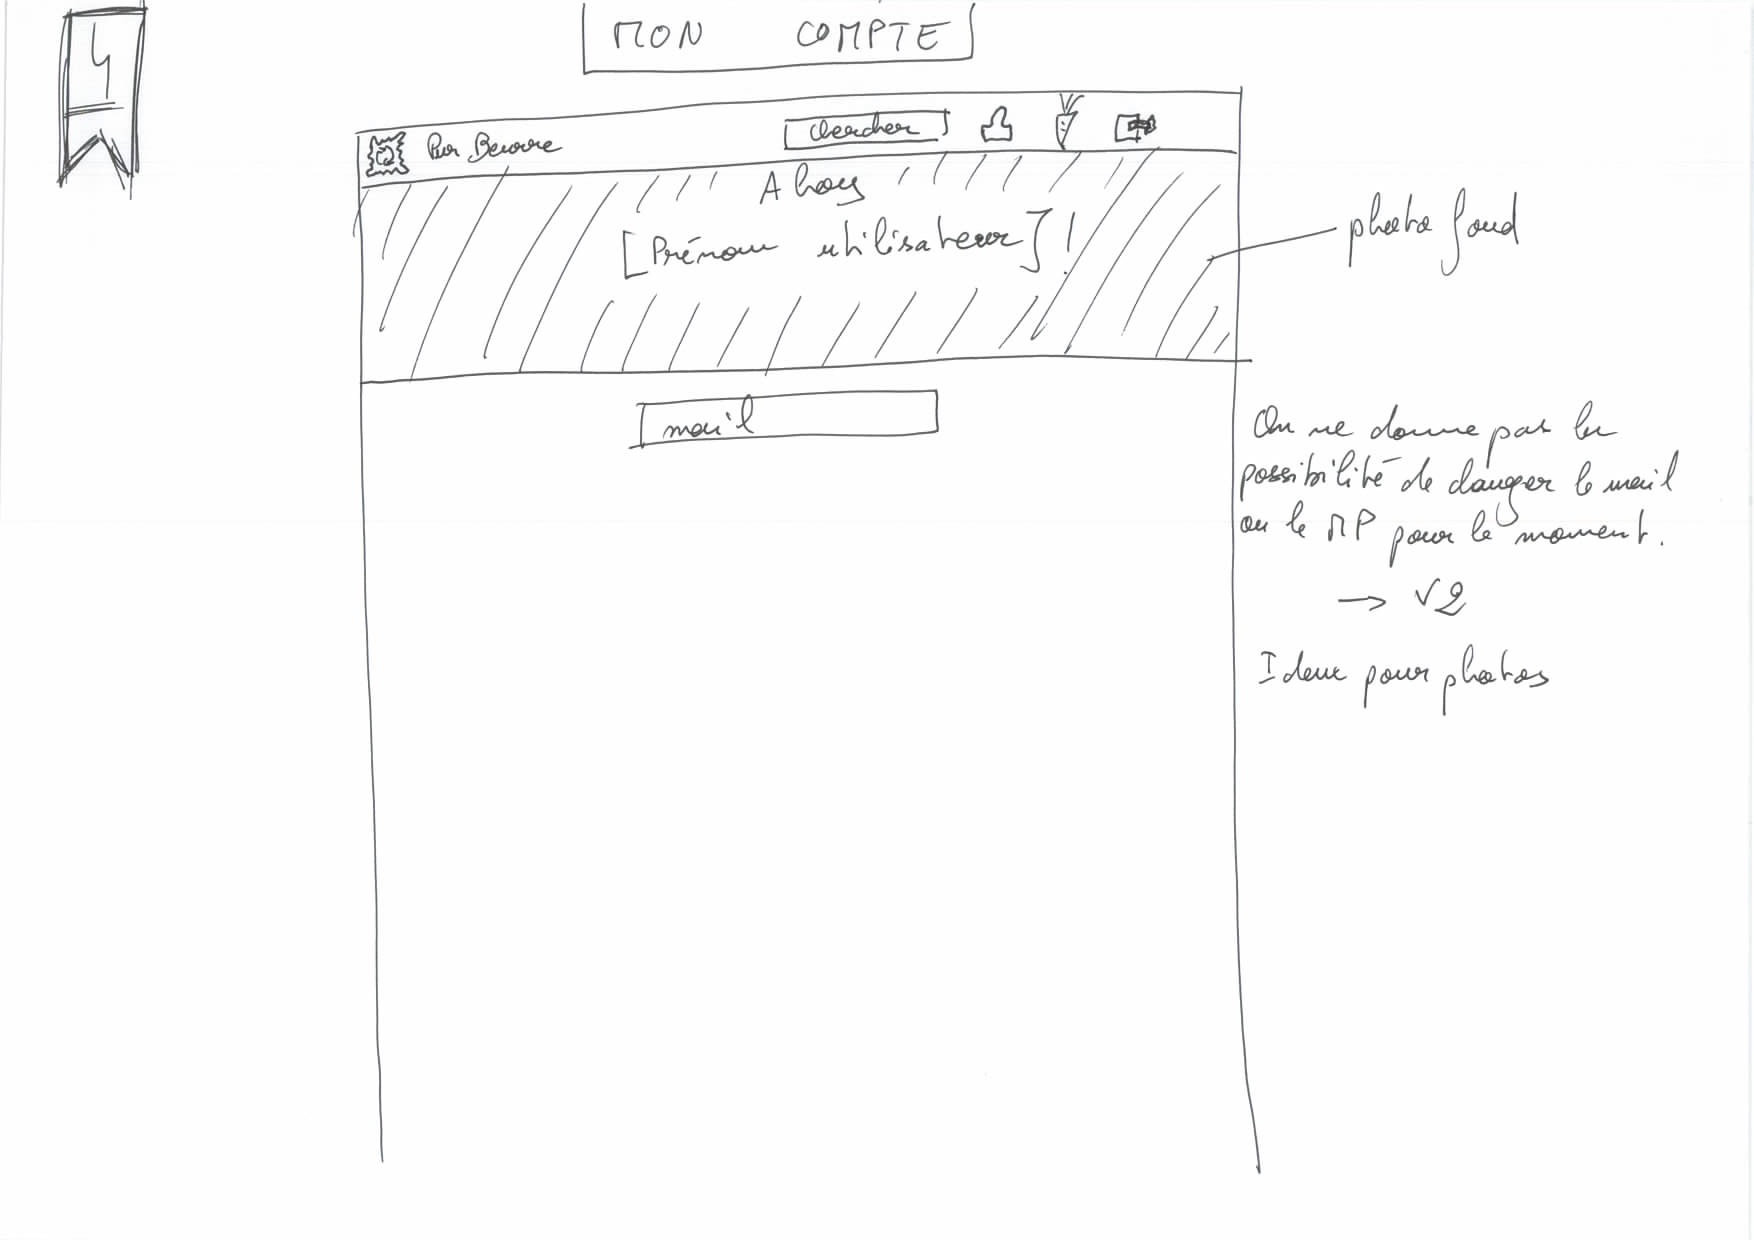 4
MON COMPTE
Pur Beurre
chercher
Ahoy
[Prénom utilisateur] !
photo fond
mail
On ne donne pas la
possibilité de changer le mail
ou le MP pour le moment.
→ V2
Idem pour photos